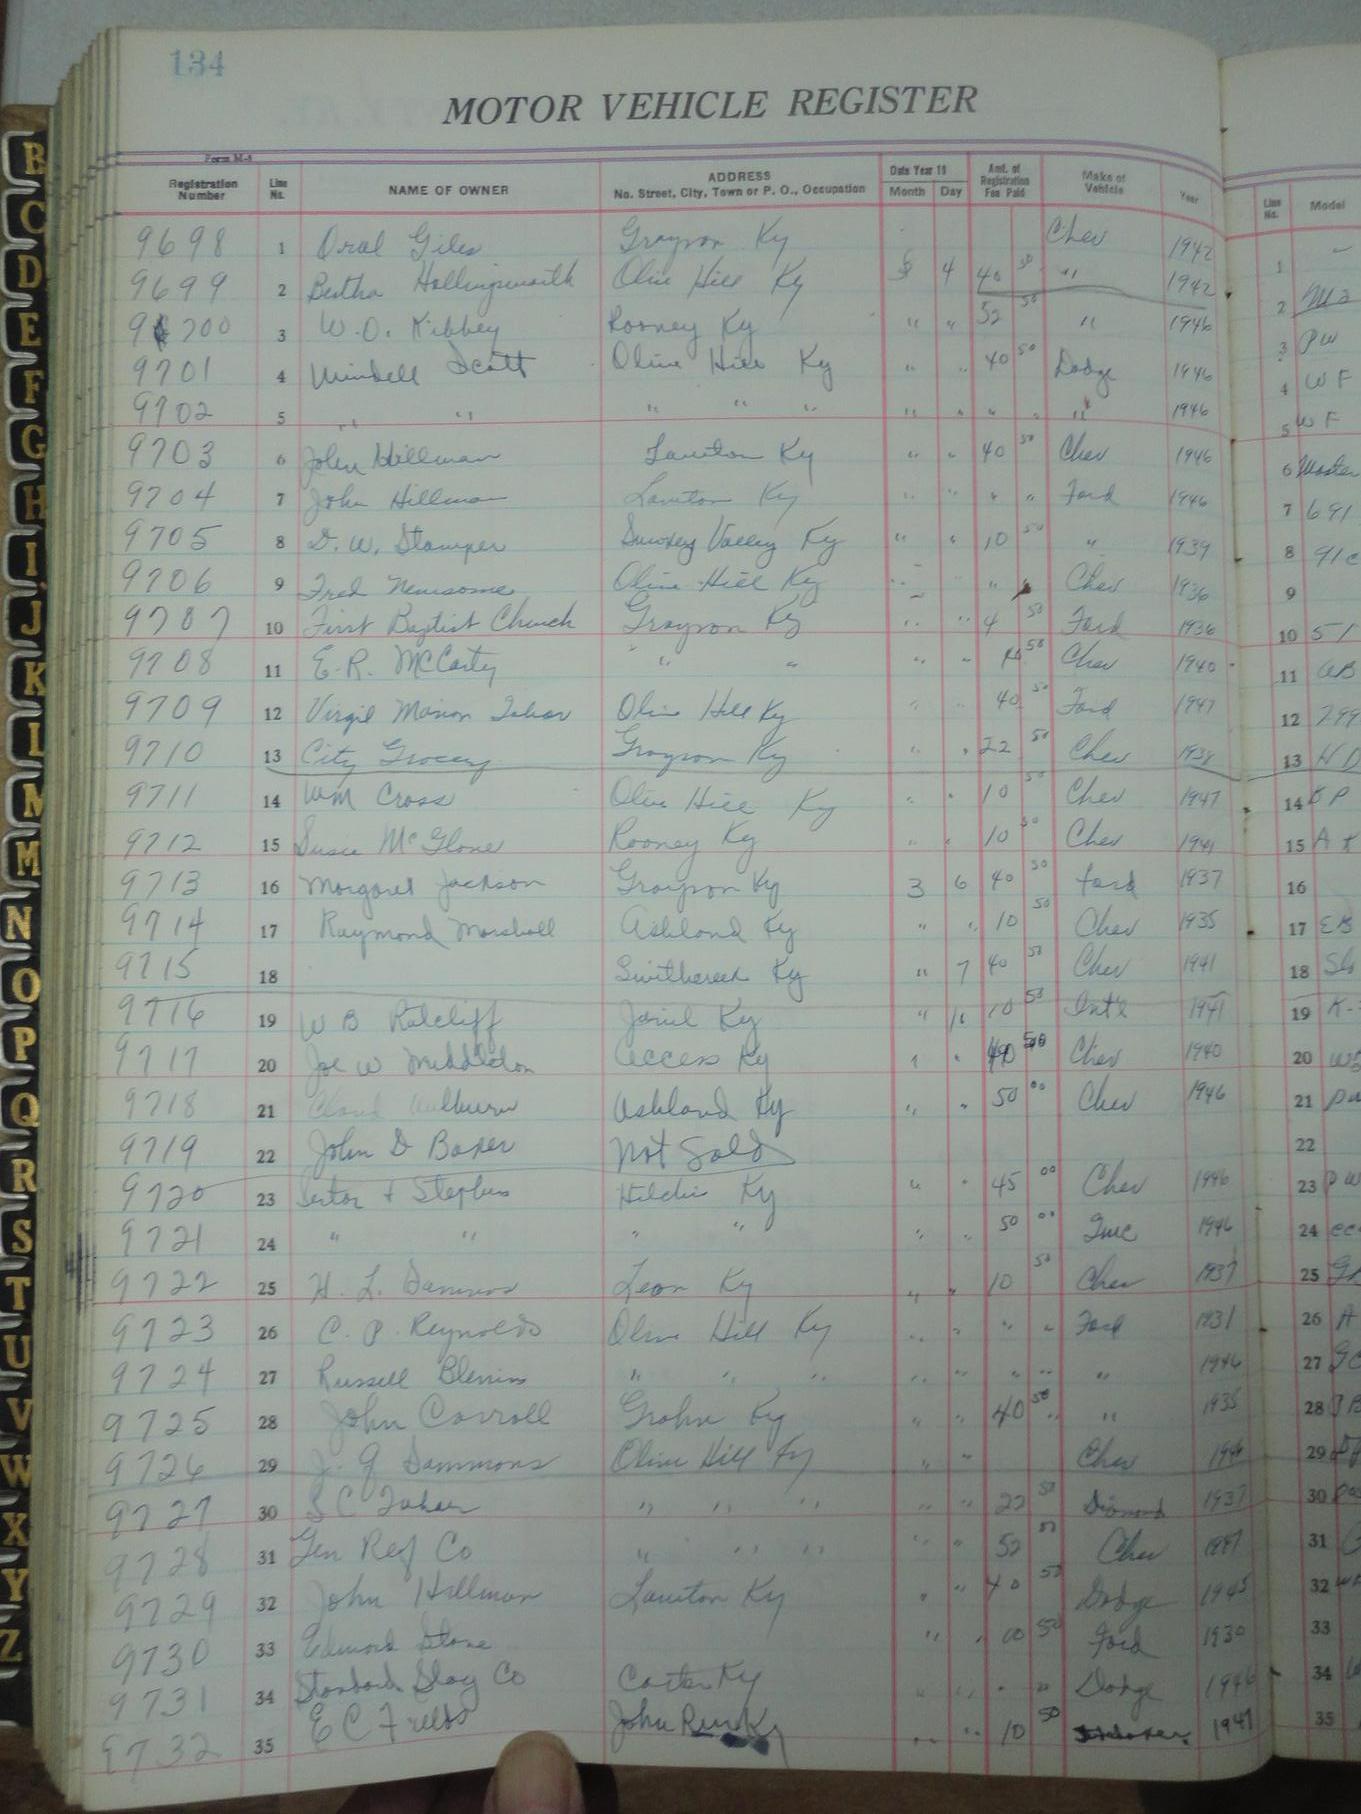 134
MOTOR VEHICLE REGISTER
Form M-8
Registration Number Line No. NAME OF OWNER ADDRESS No. Street, City, Town or P. O., Occupation Date Year 19 Month Day Amt. of Registration Fee Paid Make of Vehicle Year Line No. Model
9698 1 Oral Giles Grayson Ky Chev 1942 1
9699 2 Bertha Hollingsworth Olive Hill Ky 4 40 50 " 1942 2
9700 3 W.O. Kibbey Rooney Ky " " 52 50 " 1946 3 PW
9701 4 Windell Scott Olive Hill Ky " " 40 50 Dodge 1946 4 WF
9702 5 " " " " " " " " " " 1946 5 WF
9703 6 John Hillman Lawton Ky " " 40 50 Chev 1946 6 Master
9704 7 John Hillman Lawton Ky " " " " Ford 1946 7 691
9705 8 D. W. Stamper Smokey Valley Ky " " 10 50 " 1939 8 91c
9706 9 Fred Newsome Olive Hill Ky " " " Chev 1936 9
9707 10 First Baptist Church Grayson Ky " " 4 50 Ford 1936 10 51
9708 11 E. R. McCarty " " " " 50 Chev 1940 11
9709 12 Virgil Marion Olive Hill Ky " " 40 50 Ford 1947 12 799
9710 13 City Grocery Grayson Ky " " 22 50 Chev 1938 13
9711 14 Wm Cross Olive Hill Ky " " 10 50 Chev 1947 14
9712 15 Susie McGlone Rooney Ky " " 10 50 Chev 1941 15
9713 16 Margaret Jackson Grayson Ky 3 6 40 50 Ford 1937 16
9714 17 Raymond Marshall Ashland Ky " " 10 50 Chev 1935 17 EB
9715 18 Ky " 7 40 50 Chev 1941 18
9716 19 W B Ratcliff Ky " 10 50 Int'l 1941 19 K-
9717 20 Joe W Middleton Access Ky " " 40 Chev 1940 20
9718 21 Ashland Ky " " 50 00 Chev 1946 21
9719 22 John D Baker Not Sold 22
9720 23 & Stephens Ky " " 45 00 Chev 1946 23 PW
9721 24 " " " " " " 50 00 Gmc 1946 24
9722 25 H. L. Sammons Leon Ky " " 10 50 Chev 1937 25
9723 26 C. P. Reynolds Olive Hill Ky " " " " Ford 1931 26 A
9724 27 Russell Blevins " " " " " " " " 1946 27
9725 28 John Carroll Grahn Ky " " 40 50 " 1935 28
9726 29 J. G Sammons Olive Hill Ky " " Chev 1946 29
9727 30 S C " " " " " 22 50 Diamond 1937 30
9728 31 Gen Ref Co " " " " " 52 50 Chev 1947 31
9729 32 John Hillman Lawton Ky " " 40 50 Dodge 1945 32
9730 33 Edward Stone " " 50 Ford 1930 33
9731 34 Standard Slag Co Carter Ky " " Dodge 1946 34
9732 35 E C Fields John Run Ky " " 10 50 1947 35
B
C
D
E
F
G
H
I
J
K
L
M
M
N
O
P
Q
R
S
T
U
V
W
X
Y
Z